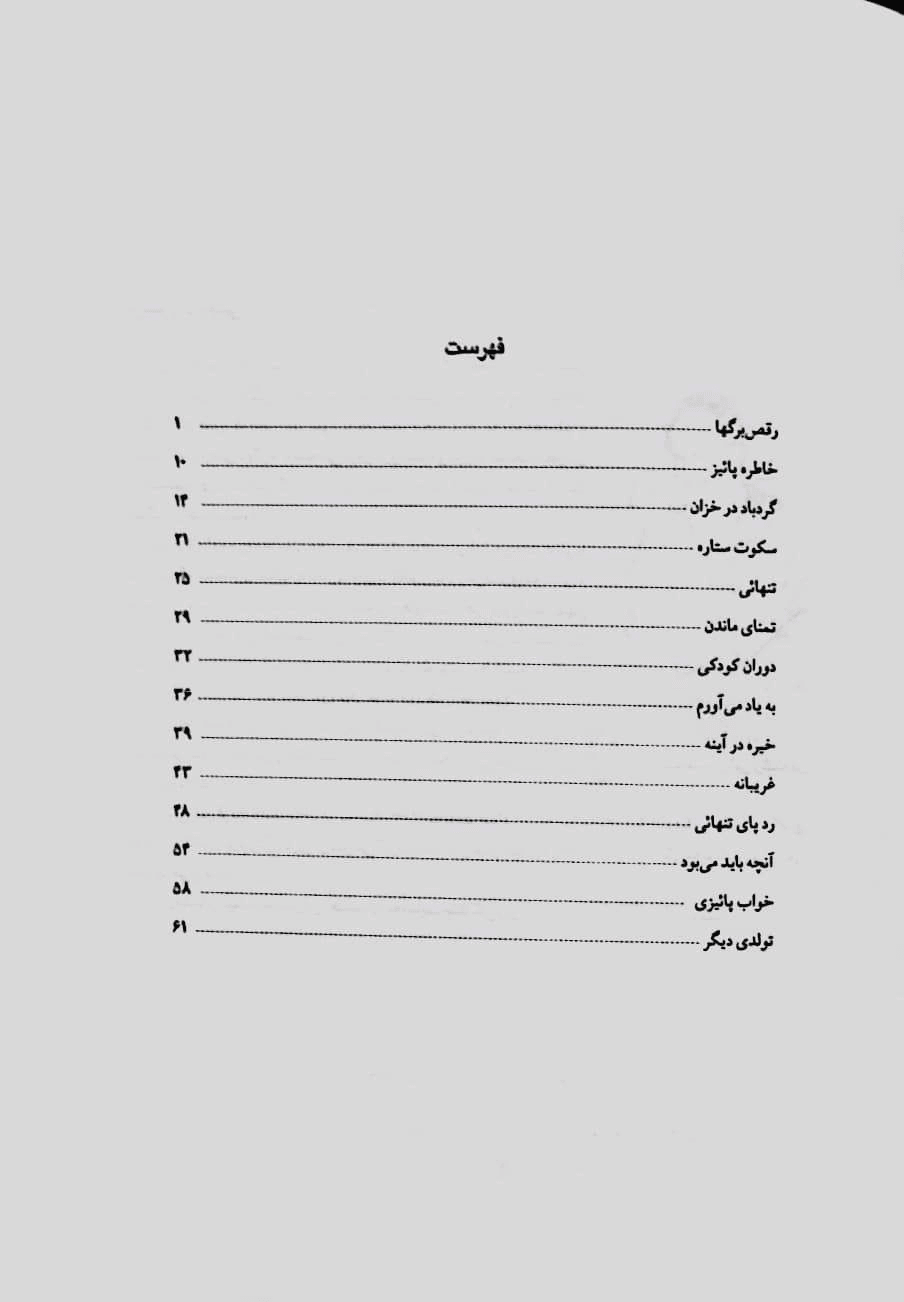 فهرست
رقص برگها ۱
خاطره پائیز ۱۰
گردباد در خزان ۱۴
سکوت ستاره ۲۱
تنهائی ۲۵
تمنای ماندن ۲۹
دوران کودکی ۳۲
به یاد می‌آورم ۳۶
خیره در آینه ۳۹
غریبانه ۴۳
رد پای تنهائی ۴۸
آنچه باید می‌بود ۵۴
خواب پائیزی ۵۸
تولدی دیگر ۶۱